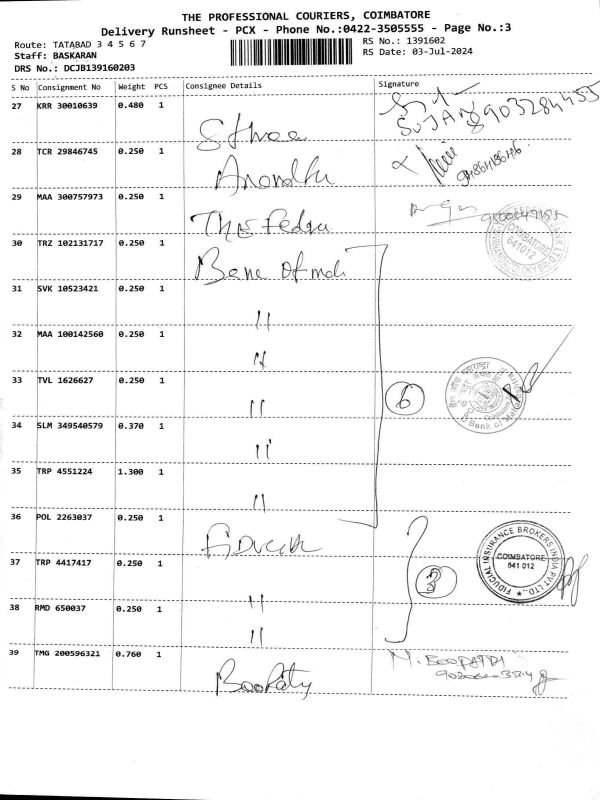 THE PROFESSIONAL COURIERS, COIMBATORE
Delivery Runsheet - PCX - Phone No.:0422-3505555 - Page No.:3
Route: TATABAD 3 4 5 6 7
RS No.: 1391602
Staff: BASKARAN
RS Date: 03-Jul-2024
DRS No.: DCJB139160203
S No Consignment No Weight PCS Consignee Details Signature
27 KRR 30010639 0.480 1
28 TCR 29846745 0.250 1
29 MAA 300757973 0.250 1 The Fedra
COIMBATORE
641012
30 TRZ 102131717 0.250 1
31 SVK 10523421 0.250 1 "
32 MAA 100142560 0.250 1 "
33 TVL 1626627 0.250 1 " 6
34 SLM 349540579 0.370 1 "
35 TRP 4551224 1.300 1 "
36 POL 2263037 0.250 1
FIDUCIAL INSURANCE BROKERS INDIA PVT LTD.,
COIMBATORE
641 012
37 TRP 4417417 0.250 1 " 3
38 RMD 650037 0.250 1 "
39 TMG 200596321 0.760 1 Boopaty M. BOOPATHI